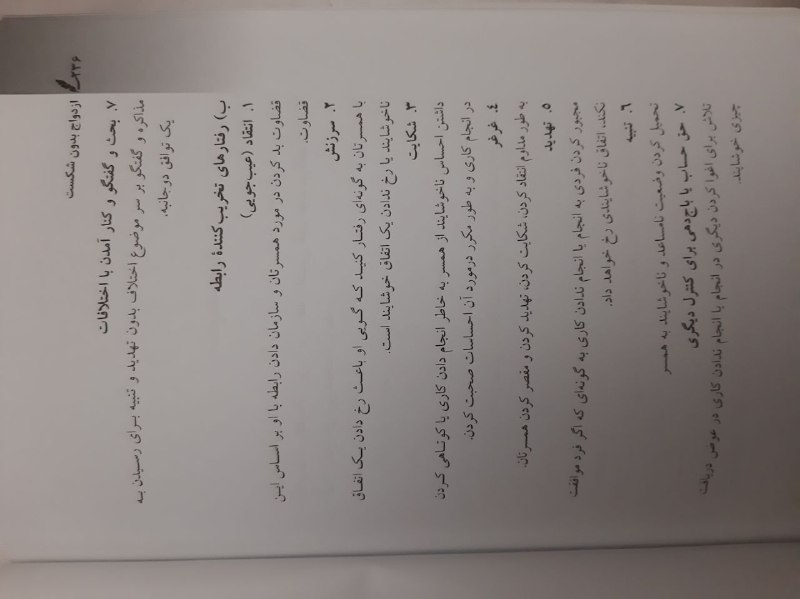 ۲۳۶
ازدواج بدون شکست
۷. بحث و گفتگو و کنار آمدن با اختلافات
مذاکره و گفتگو بر سر موضوع اختلاف بدون تهدید و تنبیه برای رسیدن به
یک توافق دوجانبه.
ب) رفتارهای تخریب‌کنندهٔ رابطه
۱. انتقاد (عیب‌جویی)
قضاوت بد کردن در مورد همسرتان و سازمان دادن رابطه با او بر اساس این
قضاوت.
۲. سرزنش
با همسرتان به گونه‌ای رفتار کنید که گویی او باعث رخ دادن یک اتفاق
ناخوشایند یا رخ ندادن یک اتفاق خوشایند است.
۳. شکایت
داشتن احساس ناخوشایند از همسر به خاطر انجام دادن کاری یا کوتاهی کردن
در انجام کاری و به طور مکرر درمورد آن احساسات صحبت کردن.
۴. غرغر
به طور مداوم انتقاد کردن، شکایت کردن، تهدید کردن و مقصر کردن همسرتان.
۵. تهدید
مجبور کردن فردی به انجام یا انجام ندادن کاری به گونه‌ای که اگر فرد موافقت
نکند، اتفاق ناخوشایندی رخ خواهد داد.
۶. تنبیه
تحمیل کردن وضعیت نامساعد و ناخوشایند به همسر
۷. حق حساب یا باج‌دهی برای کنترل دیگری
تلاش برای اغوا کردن دیگری در انجام یا انجام ندادن کاری در عوض دریافت
چیزی خوشایند.